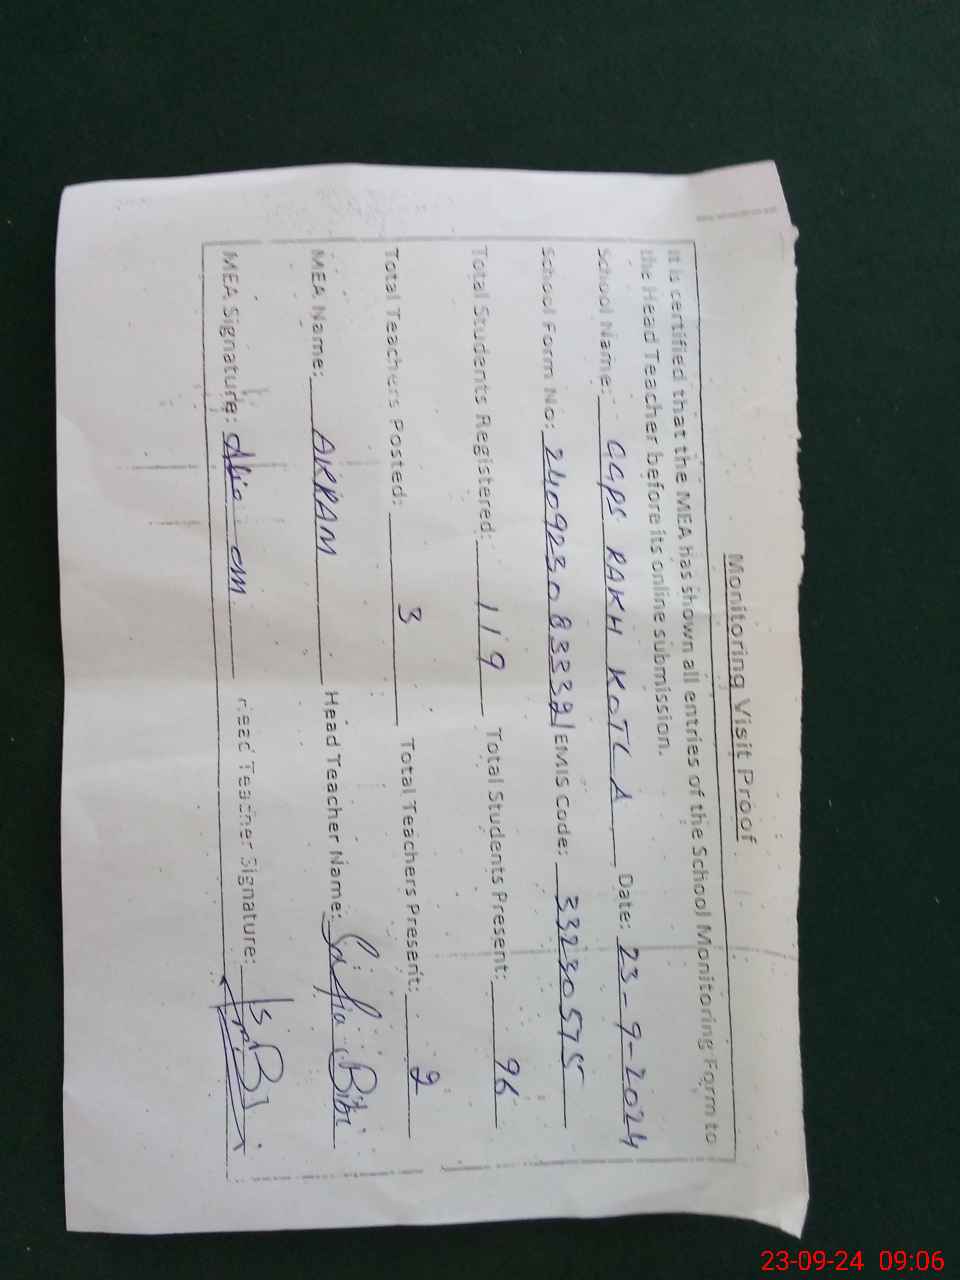 Monitoring Visit Proof
It is certified that the MEA has shown all entries of the School Monitoring Form to
the Head Teacher before its online submission.
School Name: GGPS RAKH KOTLA Date: 23-9-2024
School Form No: EMIS Code: 33230575
Total Students Registered: 119 Total Students Present: 96
Total Teachers Posted: 3 Total Teachers Present: 2
MEA Name: AKRAM Head Teacher Name: Safia Bibi
MEA Signature: Head Teacher Signature:
23-09-24 09:06